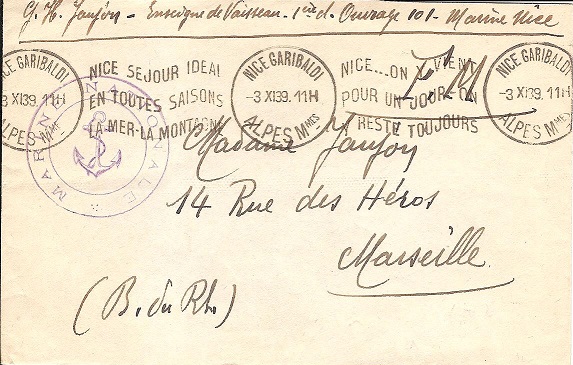 G. H. Jaujon - Enseigne de Vaisseau - 1 en 2d. Ouvrage 101 - Marine Nice
NICE GARIBALDI
-3 XI39. 11H
ALPES Mmes
NICE SÉJOUR IDÉAL
EN TOUTES SAISONS
LA MER-LA MONTAGNE
NICE GARIBALDI
-3 XI39. 11H
ALPES Mmes
NICE...ON Y VIENT
POUR UN JOUR-ON
Y RESTE TOUJOURS
NICE GARIBALDI
-3 XI39. 11H
ALPES Mmes
F.M
MARINE NATIONALE
Madame Jaujon
14 Rue des Héros
Marseille
(B. du Rh.)